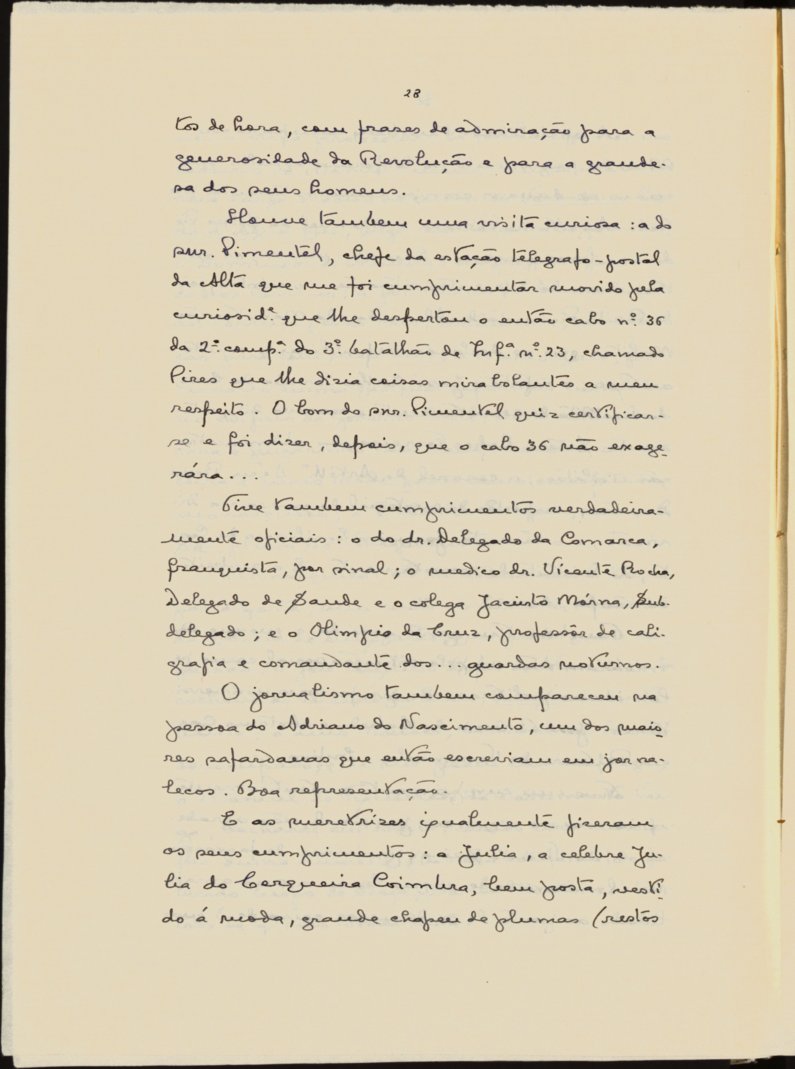 28
tos de hora, com frases de admiração para a
generosidade da Revolução e para a grande-
sa dos seus homens.
Houve tambem uma visita curiosa: a do
snr. Pimentel, chefe da estação telegrafo-postal
da Alta que me foi cumprimentar movido pela
curiosid.ᵉ que lhe despertou o então cabo nº. 36
da 2ª. comp.ª do 3º. batalhão de Inf.ª nº. 23, chamado
Pires que lhe disia coisas mirabolantes a meu
respeito. O bom do snr. Pimentel quiz certificar-
se e foi dizer, depois, que o cabo 36 não exage-
rára...
Tive tambem cumprimentos verdadeira-
mente oficiais: o do dr. Delegado da Comarca,
franquista, por sinal; o medico dr. Vicente Rocha,
Delegado de Saude e o colega Jacinto Mórna, Sub-
delegado; e o Olimpio da Cruz, professôr de cali-
grafia e comandante dos... guardas noturnos.
O jornalismo tambem compareceu na
pessoa do Adriano do Nascimento, um dos maio-
res safardanas que então escreviam em jorna-
lecos. Boa representação.
E as meretrizes igualmente fizeram
os seus cumprimentos: a Julia, a celebre Ju-
lia do Cerqueira Coimbra, bem posta, vesti-
do á moda, grande chapeu de plumas (restos